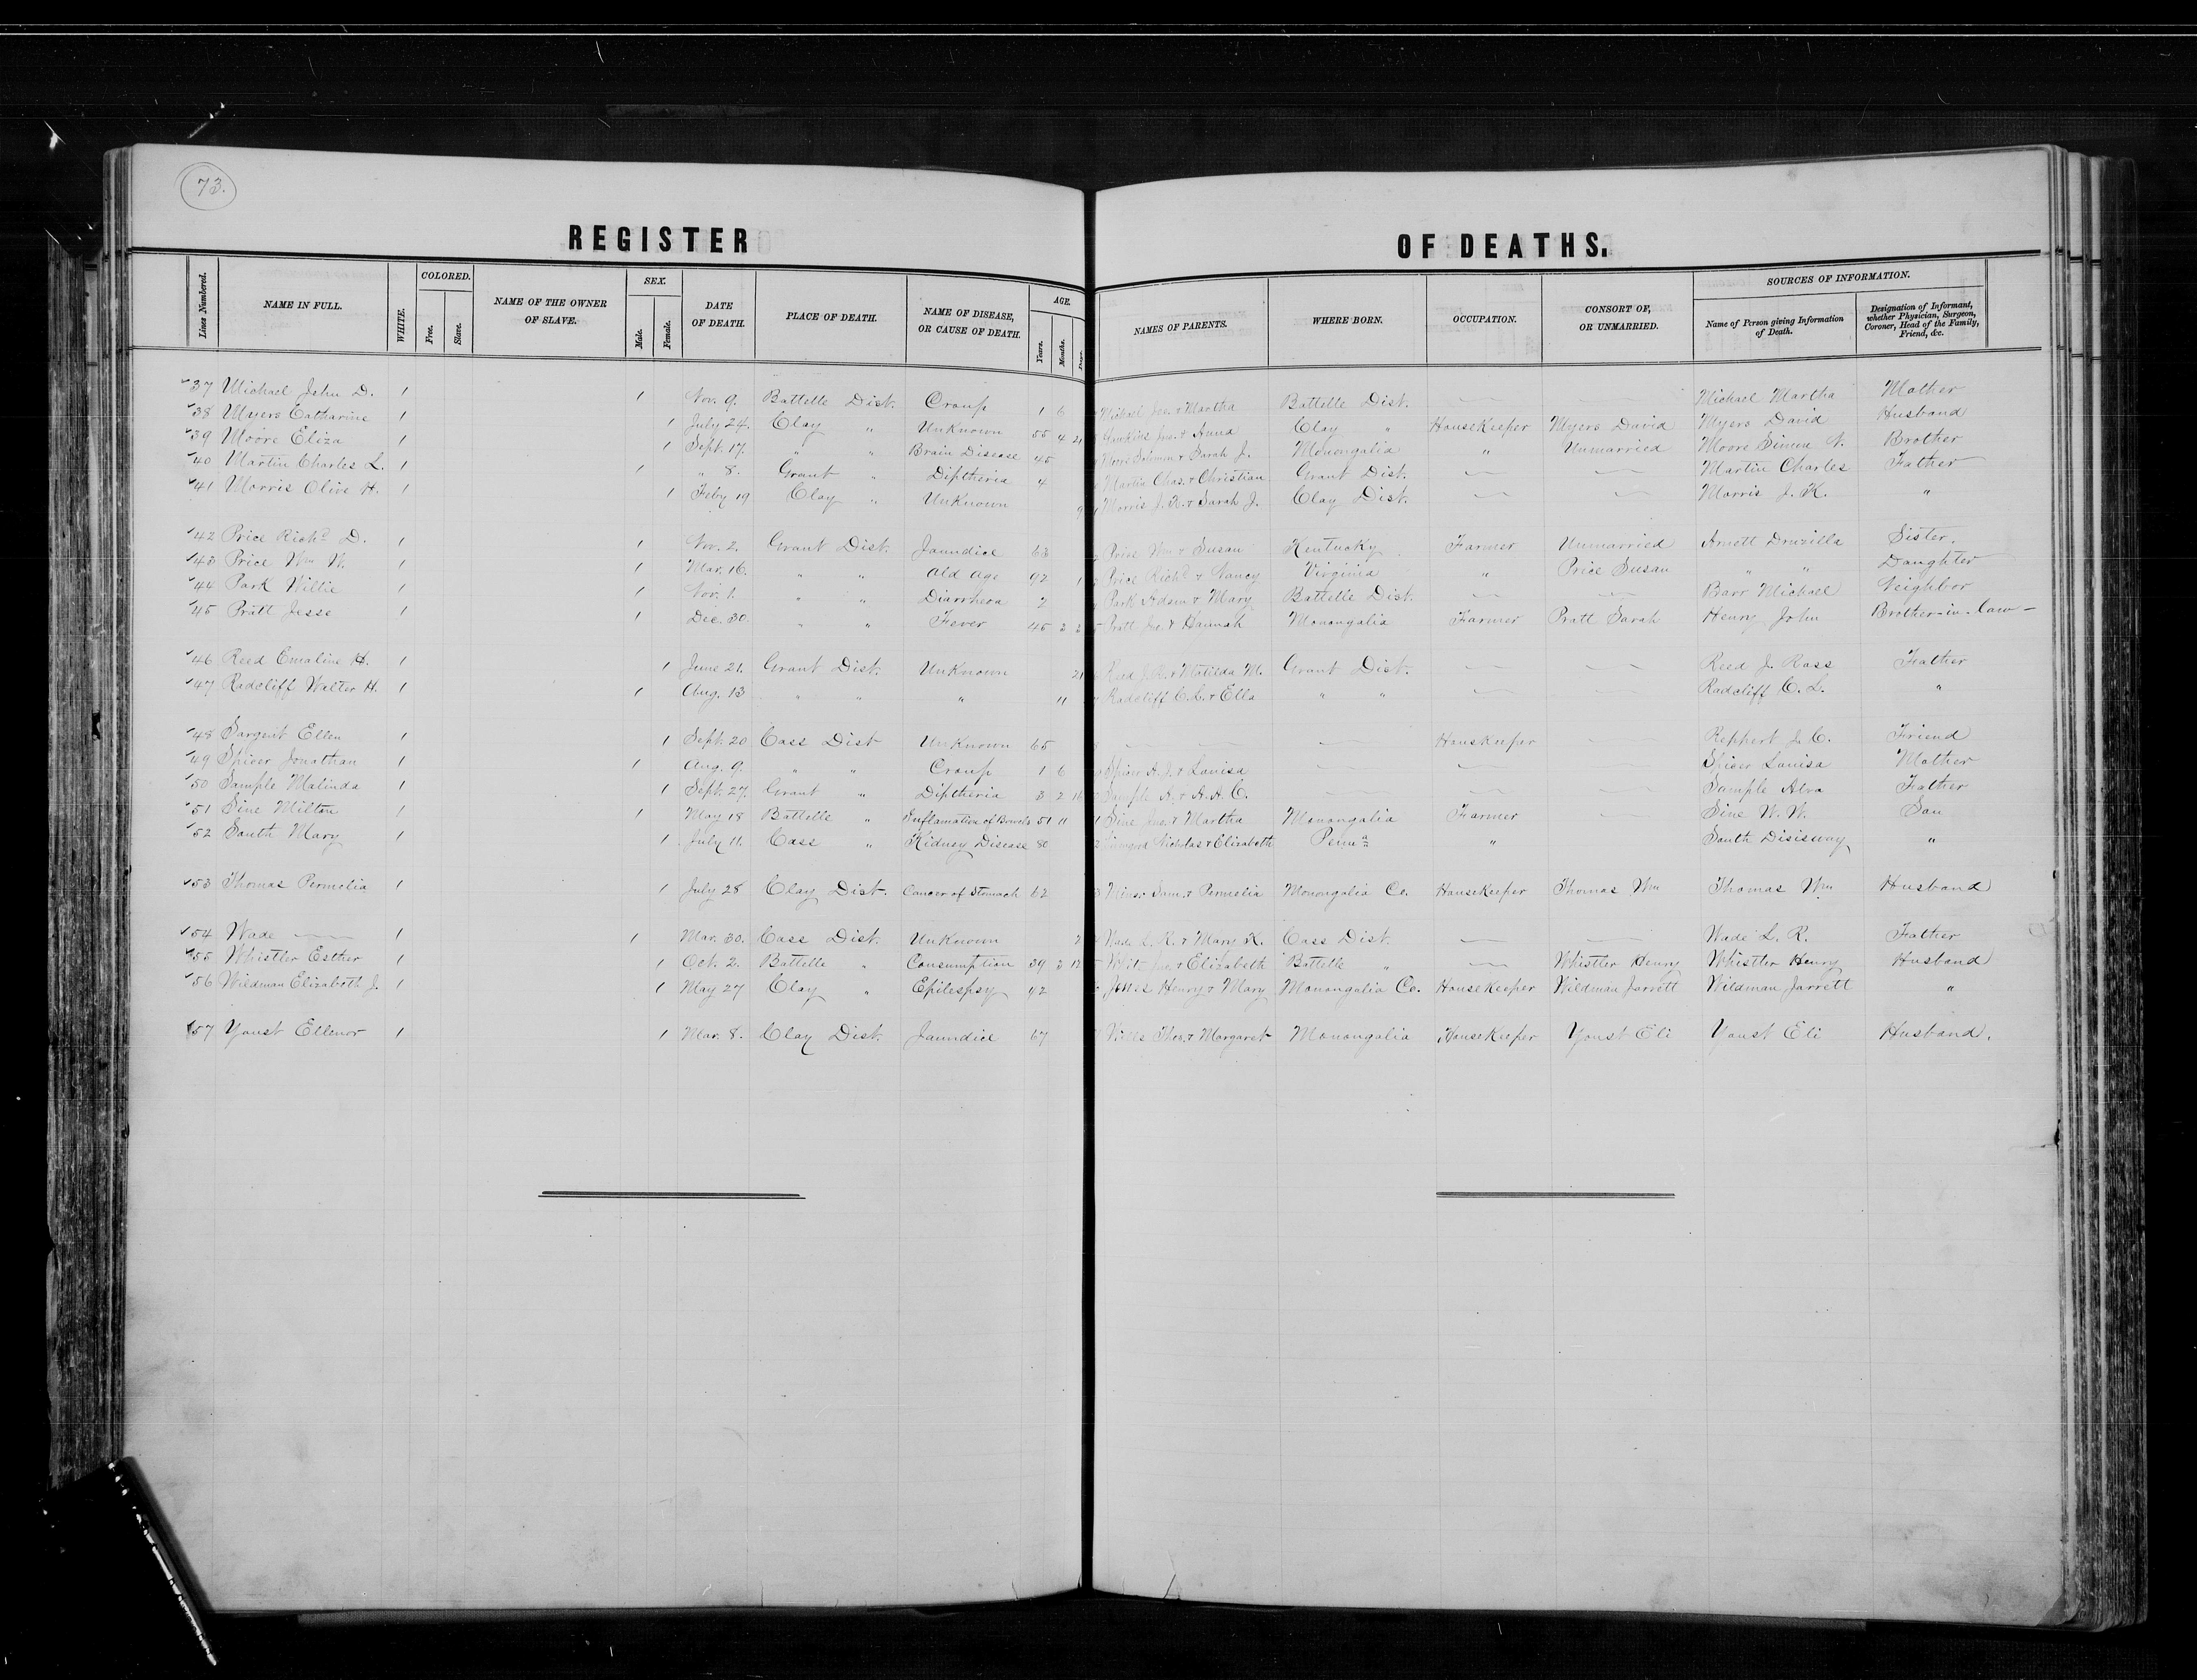 73.
REGISTER OF DEATHS.
Lines Numbered. NAME IN FULL. WHITE. COLORED. Free. Slave. NAME OF THE OWNER OF SLAVE. SEX. Male. Female. DATE OF DEATH. PLACE OF DEATH. NAME OF DISEASE, OR CAUSE OF DEATH. AGE. Years. Months. Days. NAMES OF PARENTS. WHERE BORN. OCCUPATION. CONSORT OF, OR UNMARRIED. SOURCES OF INFORMATION. Name of Person giving Information of Death. Designation of Informant, whether Physician, Surgeon, Coroner, Head of the Family, Friend, &c.
37 Michael John D. 1 1 Nov. 9. Battelle Dist. Croup 1 6 Michael Jno. & Martha Battelle Dist. Michael Martha Mother
38 Myers Catharine 1 1 July 24. Clay " UnKnown 55 4 21 Hawkins Jno. & Anna Clay " HouseKeeper Myers David Myers David Husband
39 Moore Eliza 1 1 Sept. 17. " " Brain Disease 45 Moore Solomon & Sarah J. Monongalia " Unmarried Moore Simon N. Brother
40 Martin Charles L. 1 1 " 8. Grant " Diptheria 4 Martin Chas. & Christian Grant Dist. Martin Charles Father
41 Morris Olive H. 1 1 Feby 19 Clay " UnKnown 9 Morris J. K. & Sarah J. Clay Dist. Morris J. K. "
42 Price Richd D. 1 1 Nov. 2. Grant Dist. Jaundice 63 Price Wm & Susan Kentucky Farmer Unmarried Arnett Druzilla Sister.
43 Price Wm W. 1 1 Mar. 16. " " Old Age 92 1 Price Richd & Nancy Virginia " Price Susan " " Daughter
44 Park Willie 1 1 Nov. 1. " " Diarrheoa 2 Park Adam & Mary Battelle Dist. Barr Michael Neighbor
45 Pratt Jesse 1 1 Dec. 30. " " Fever 45 3 Pratt Jno. & Hannah Monongalia Farmer Pratt Sarah Henry John Brother-in-law-
46 Reed Emaline H. 1 1 June 21. Grant Dist. UnKnown 21 Reed J. R. & Matilda M. Grant Dist. Reed J. Ross Father
47 Radcliff Walter H. 1 1 Aug. 13 " " " 11 Radcliff C. L. & Ella " " Radcliff C. L. "
48 Sargent Ellen 1 1 Sept. 20 Cass Dist UnKnown 65 HouseKeeper Reppert J. C. Friend
49 Spicer Jonathan 1 1 Aug. 9. " " Croup 1 6 Spicer A. J. & Louisa Spicer Louisa Mother
50 Sample Malinda 1 1 Sept. 27. Grant " Diptheria 3 2 16 Sample A. & A. A. C. Sample Alva Father
51 Sine Milton 1 1 May 18 Battelle " Inflamation of Bowels 51 11 Sine Jno. & Martha Monongalia Farmer Sine W. W. Son
52 South Mary 1 1 July 11. Cass " Kidney Disease 80 Nicholas & Elizabeth Penna " South Disisway "
53 Thomas Permelia 1 1 July 28 Clay Dist. Cancer of Stomach 62 Minor Sam. & Permelia Monongalia Co. HouseKeeper Thomas Wm Thomas Wm Husband
54 Wade 1 1 Mar. 30. Cass Dist. UnKnown Wade L. R. & Mary K. Cass Dist. Wade L. R. Father
55 Whistler Esther 1 1 Oct. 2. Battelle " Consumption 39 3 12 White Jno. & Elizabeth Battelle " Whistler Henry Whistler Henry Husband
56 Wildman Elizabeth J. 1 1 May 27 Clay " Epilespsy 42 Jones Henry & Mary Monongalia Co. HouseKeeper Wildman Jarrett Wildman Jarrett "
57 Youst Ellenor 1 1 Mar. 8. Clay Dist. Jaundice 67 Thos. & Margaret Monongalia HouseKeeper Youst Eli Youst Eli Husband.